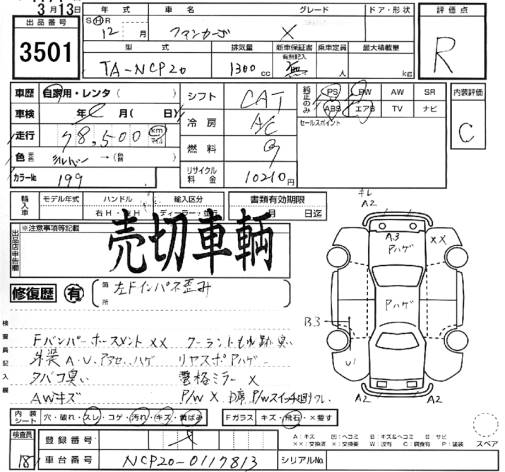 3月13日
出品番号 3501
年式 SⒽR 12年 月
車名 ファンカーゴ
グレード X
ドア・形状
評価点 R
型式 TA-NCP20
排気量 1300cc
新車保証書 有無記入 無
乗車定員 人
最大積載量 kg
車歴 自家用・レンタ( )
シフト CAT
純正のみ PS PW AW SR
ABS エアB TV ナビ
内装評価 C
車検 年 月( 日)
冷房 A/C
セールスポイント
走行 78,500 km マイル
燃料 G
色 シルバー →(替 )
カラー№ 199
リサイクル料金 10210円
輸入車 モデル年式 ハンドル 右H・左H 輸入区分 ディーラー・並行
書類有効期限 月 日迄
出品店申告欄 ※注意事項等記載
売切車輌
修復歴 有 箇所 左Fインパネ歪み
キレ A2
A3 Pハゲ XX
Pハゲ
B3
U1
A2 A2
検査員記入欄
Fバンパーホースメント XX
外装 A・U、アラセ、ハゲ リヤスポアハゲー
タバコ臭い 警格ミラー X
AWキズ P/W X
内装シート 穴・破れ・スレ・コゲ・汚れ・キズ・黄ばみ
Fガラス キズ・飛石・X要す
スペア
検査員 181
登録番号
車台番号 NCP20-0117813
シリアル№
A:キズ U:ヘコミ B:キズ&ヘコミ S:サビ
XX:交換済 X:交換要 W:波有 C:腐食有 P:塗装